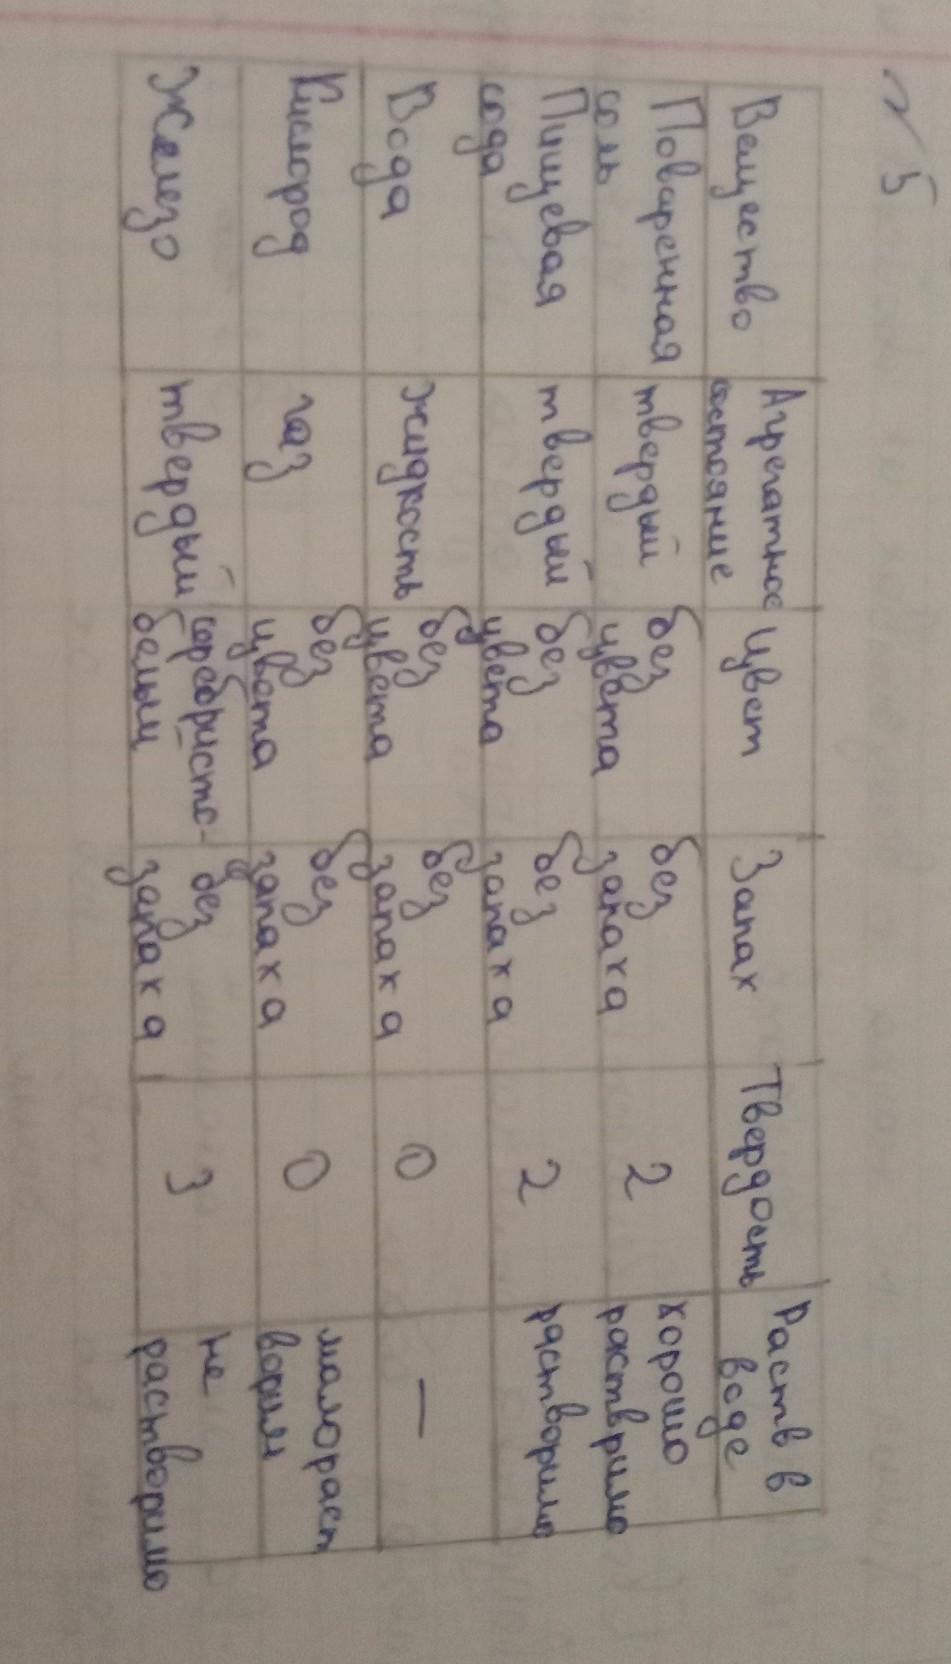 №5
Вещество Агрегатное состояние Цвет Запах Твердость Раств в воде
Поваренная соль твердый без цвета без запаха 2 хорошо раствримо
Пищевая сода твердый без цвета без запаха 2 растворимо
Вода жидкость без цвета без запаха 0 —
Кислород газ без цвета без запаха 0 малораст ворим
Железо твердый серебристо-белый без запаха 3 не растворимо